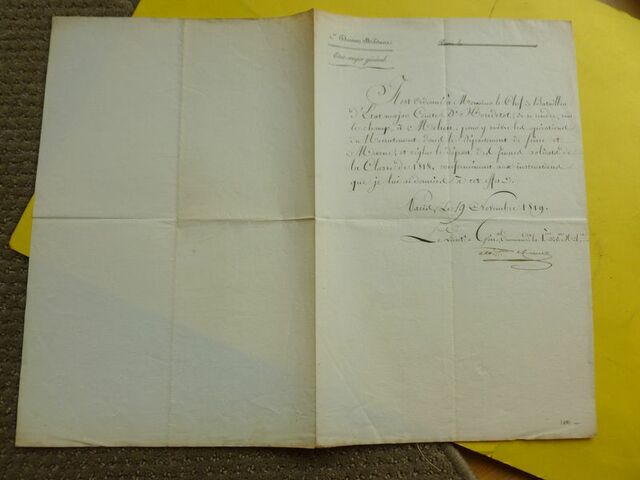 1re Division Militaire.
Paris le
Etat-major général.
Il est Ordonné à Monsieur le Chef de Bataillon
d'Etat major Comte D'Houdetot, de se rendre, sur
le champ, à Melun, pour y suivre les opérations
du Recrutement dans le Département de Seine et
Marne, et régler le départ des jeunes soldats de
la Classe de 1818, conformément aux instructions
que je lui ai données à cet effet.
Paris, Le 19 Novembre 1819.
Le Lieut. Génal Commandant la 1ère Don Mre